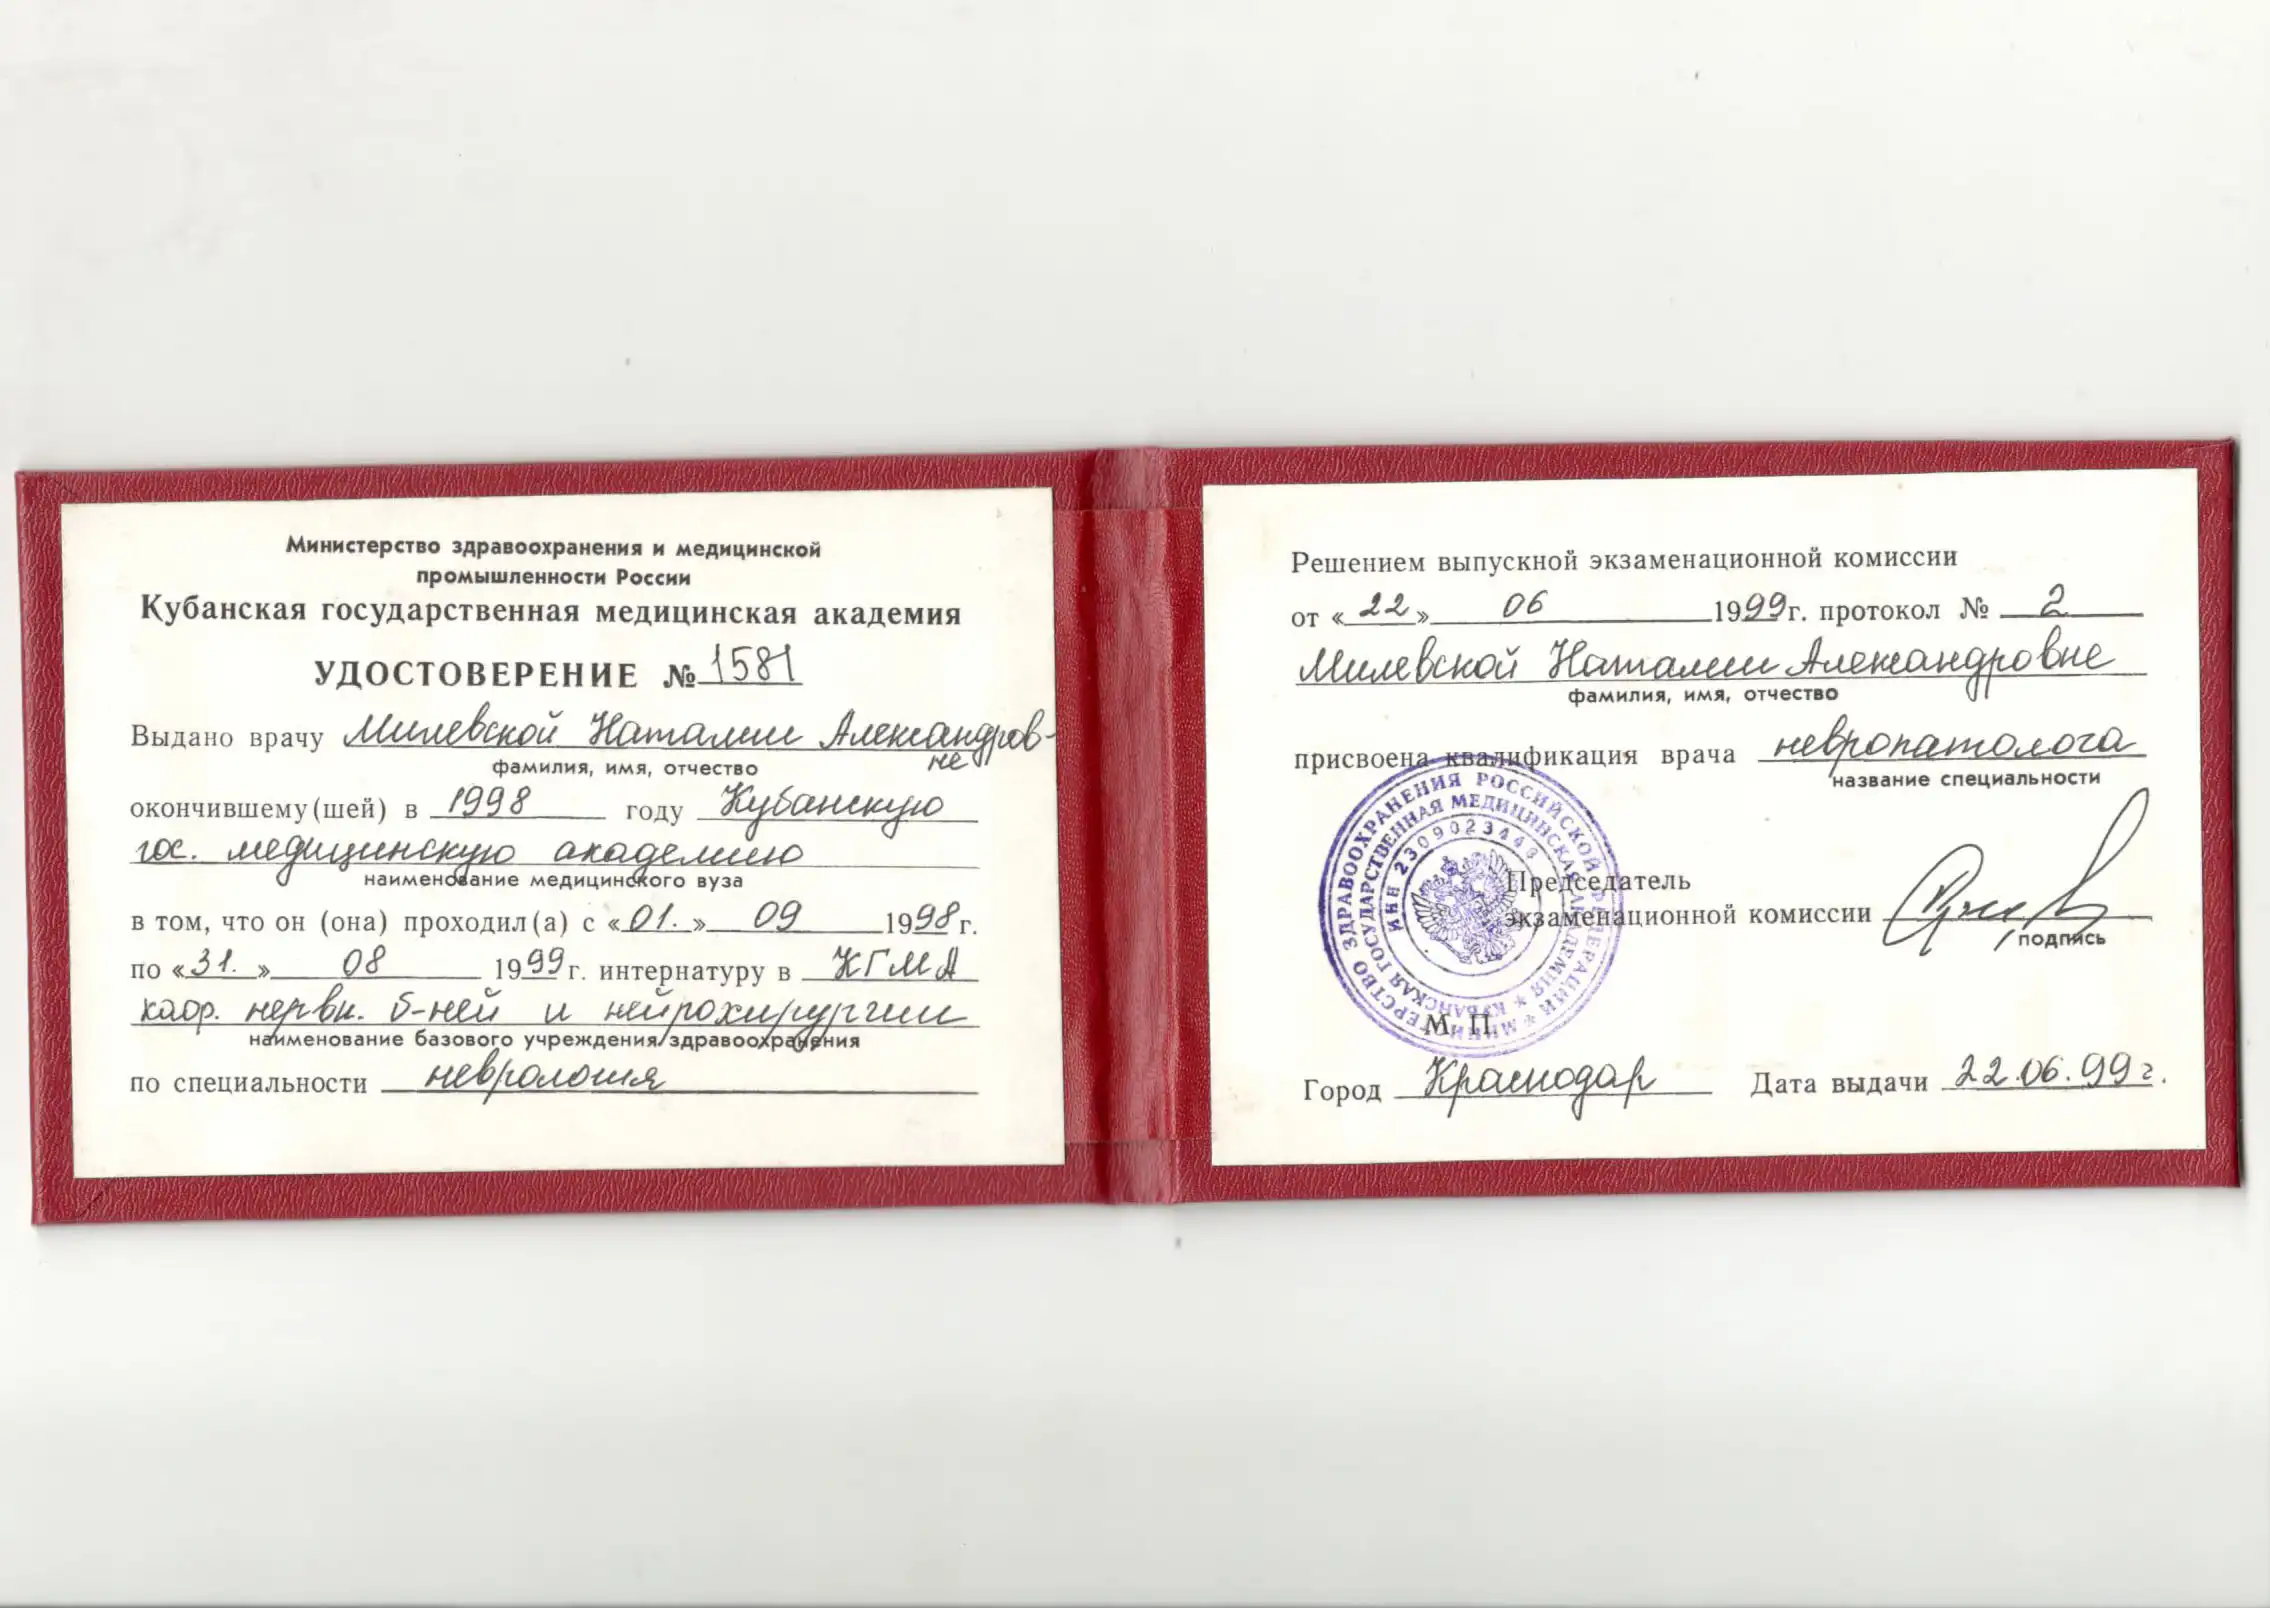 Министерство здравоохранения и медицинской
промышленности России
Кубанская государственная медицинская академия
УДОСТОВЕРЕНИЕ № 1581
Выдано врачу Милевской Наталии Александров-
не
фамилия, имя, отчество
окончившему(шей) в 1998 году Кубанскую
гос. медицинскую академию
наименование медицинского вуза
в том, что он (она) проходил(а) с «01.» 09 1998г.
по «31.» 08 1999г. интернатуру в КГМА
каф. нервн. б-ней и нейрохирургии
наименование базового учреждения здравоохранения
по специальности неврология
Решением выпускной экзаменационной комиссии
от «22» 06 1999г. протокол № 2
Милевской Наталии Александровне
фамилия, имя, отчество
присвоена квалификация врача невропатолога
название специальности
Председатель
экзаменационной комиссии
подпись
М. П.
Город Краснодар Дата выдачи 22.06.99г.
МИНИСТЕРСТВО ЗДРАВООХРАНЕНИЯ РОССИЙСКОЙ ФЕДЕРАЦИИ
КУБАНСКАЯ ГОСУДАРСТВЕННАЯ МЕДИЦИНСКАЯ АКАДЕМИЯ
ИНН